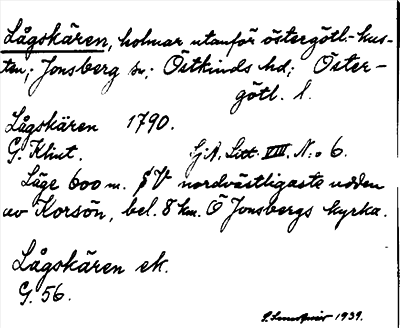 Lågskären, holmar utanför östergötl.-kus-
ten; Jonsberg sn; Östkinds hd; Öster-
götl. l.
Lågskären 1790.
G. Klint. SjA. Litt. VIII. N:o 6.
Läge 600 m. SV nordvästligaste udden
av Korsön, bel. 8 km. Ö Jonsbergs kyrka.
Lågskären ek.
G. 56.
1939.